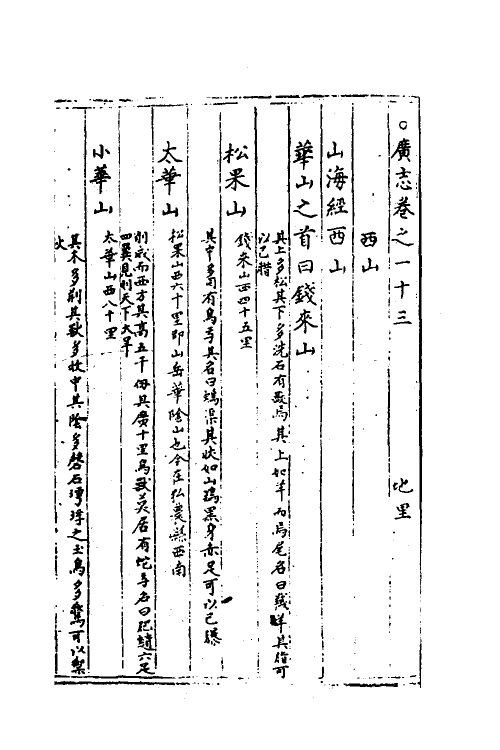 ○廣志卷之一十三　地里
西山
山海經西山
華山之首曰錢來山
其上多松其下多洗石有獸焉其上如羊而馬尾名曰羬羊其脂可
以已腊
錢來山西四十五里
松果山
其中多有鳥焉其名曰螐渠其狀如山鷄黑身赤足可以已㬥
松果山西六十里即山岳華陰山也今在弘農縣西南
太華山
削成而四方其高五千仞其廣十里鳥獸莫居有蛇焉名曰肥𧔥六足
四翼見則天下大旱
太華山西八十里
小華山
其木多荊其獸多㸲牛其陰多磬石㻬琈之玉鳥多鷩可以禦
火